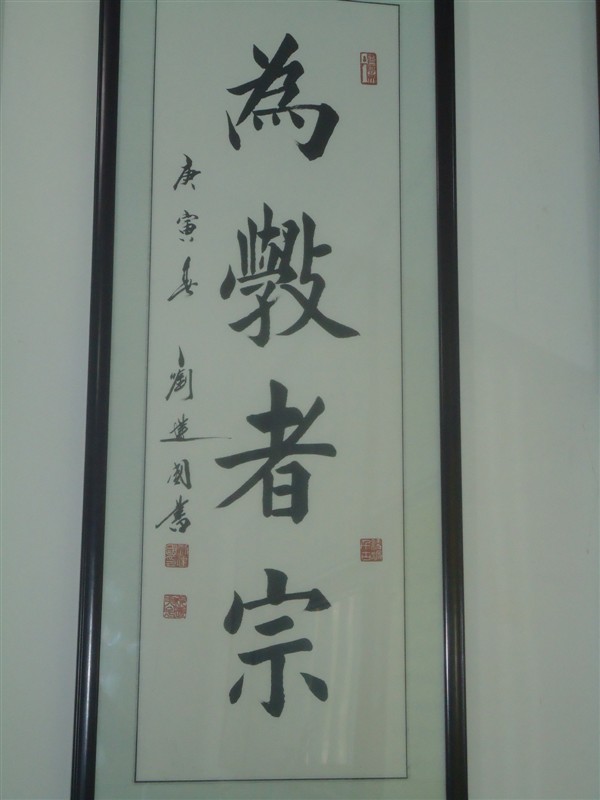 為斆者宗
庚寅春 劉建國書